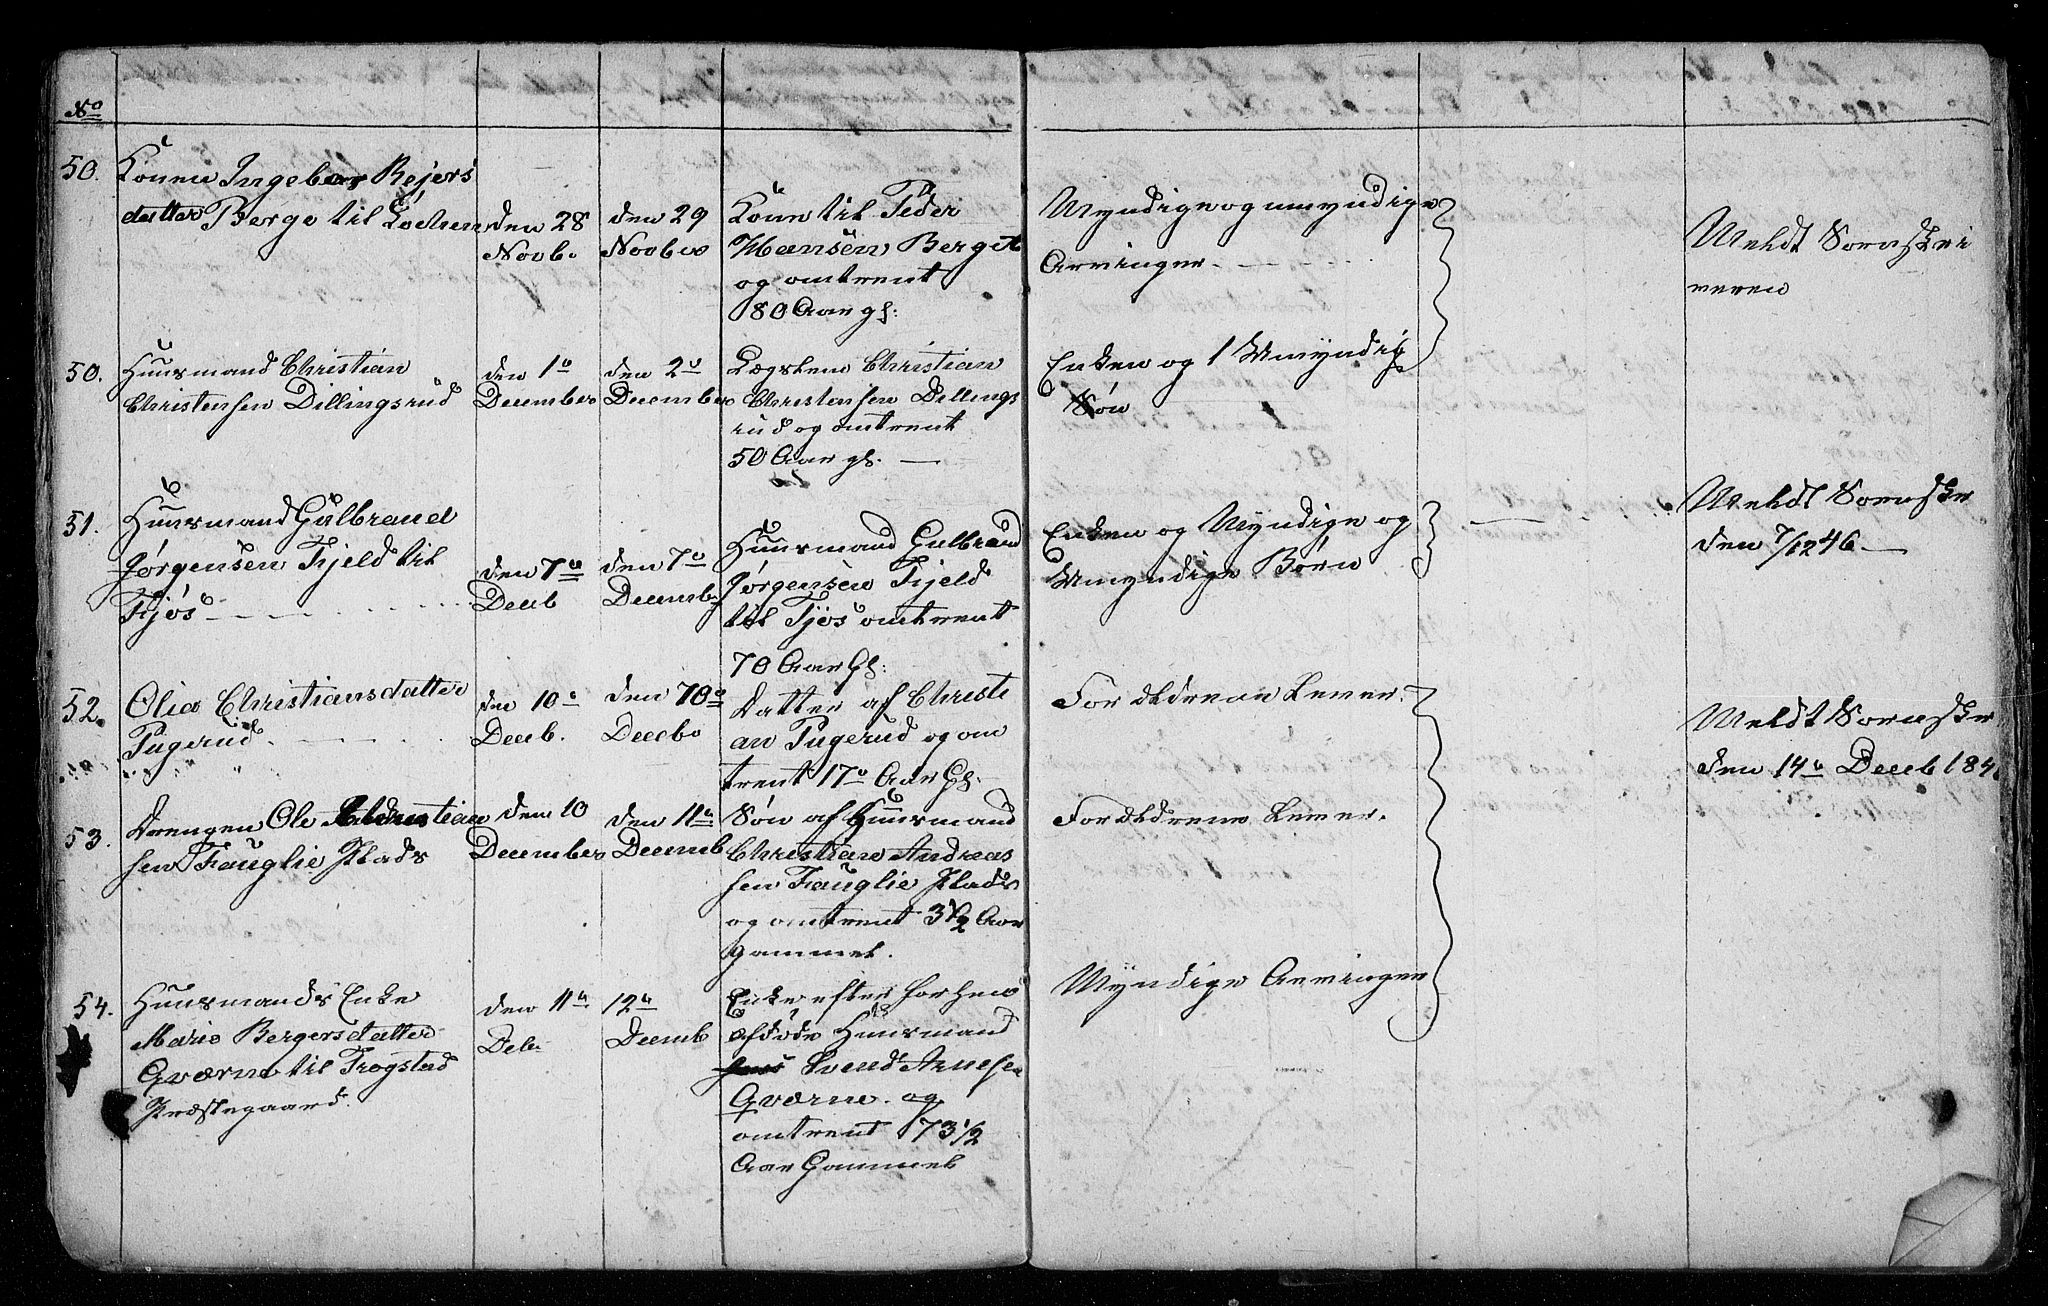 No
50. Konen Ingebor Rejers
datter Berge til Lochen
den 28
Novb.
den 29
Novber
Kone til Peder
Hansen Berget
og omtrent
80 Aar gl:
Myndige og umyndige
Arvinger.
Meldt Sorenskri
veren
50. Huusmand Christian
Christensen Dillingsrud
den 1o
December
den 2o
December
Lægskem Christian
Christensen Dillings
rud og omtrent
50 Aar gl.
Enken og 1 Umyndig
Søn
51. Huusmand Gulbrand
Jørgensen Fjeld til
Fjøs
den 7o
Decb
den 7o
Decembr
Huusmand Gulbrand
Jørgensen Fjeld
til Fjøs omtrent
70 Aar Gl:
Enken og Myndige og
Umyndige Børn
Meldt Sorenskr
den 7/12 46
52. Olia Christiansdatter
Pugerud
den 10
Decb.
den 10o
Decbr
Datter af Christi
an Pugerud og om
trent 17o Aar Gl.
Forældrene Lever.
Meldt Sorenskr
den 14 Decb 184
53. Drengen Ole Christian
sen Frauglie Plads
den 10
December
den 11
Decemb
Søn af Huusmand
Christian Andreas
sen Frauglie Plads
og omtrent 3 1/2 Aar
gammel.
Forældrene Lever.
54. Huusmands Enke
Marie Bergersdatter
Qværne til Trogstad
Præstegaard.
den 11
Decbr
12
Decemb
Enke efter forhen
afdøde Huusmand
Svend Arnesen
Qværne. og
omtrent 73 1/2
Aar Gammel
Myndige Arvinger